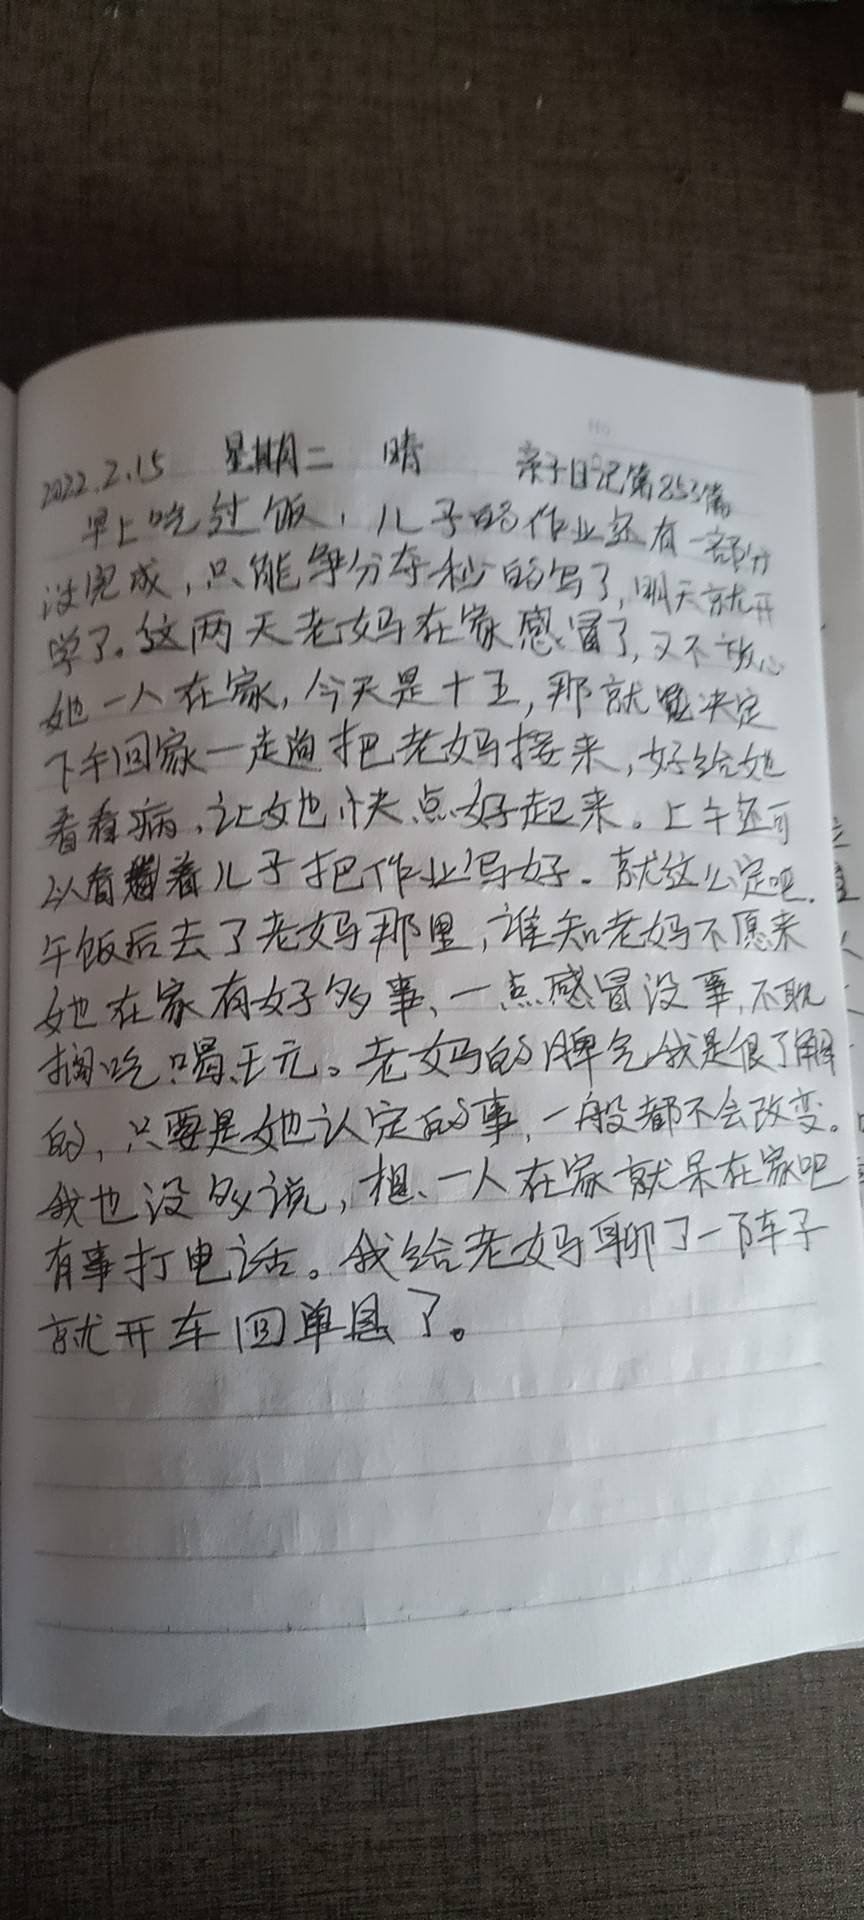 2022.2.15 星期二 晴 亲子日记第853篇
早上吃过饭，儿子的作业还有一部分
没完成，只能争分夺秒的写了，明天就开
学了。这两天老妈在家感冒了，又不放心
她一人在家，今天是十五，那就决定
下午回家一趟把老妈接来，好给她
看看病，让她快点好起来。上午还可
以看着儿子把作业写好。就这么定吧．
午饭后去了老妈那里，谁知老妈不愿来
她在家有好多事、一点感冒没事，不耽
搁吃喝．老妈的脾气我是很了解
的，只要是她认定的事，一般都不会改变。
我也没多说，想、一人在家就呆在家吧
有事打电话。我给老妈聊了一阵子
就开车回单县了。